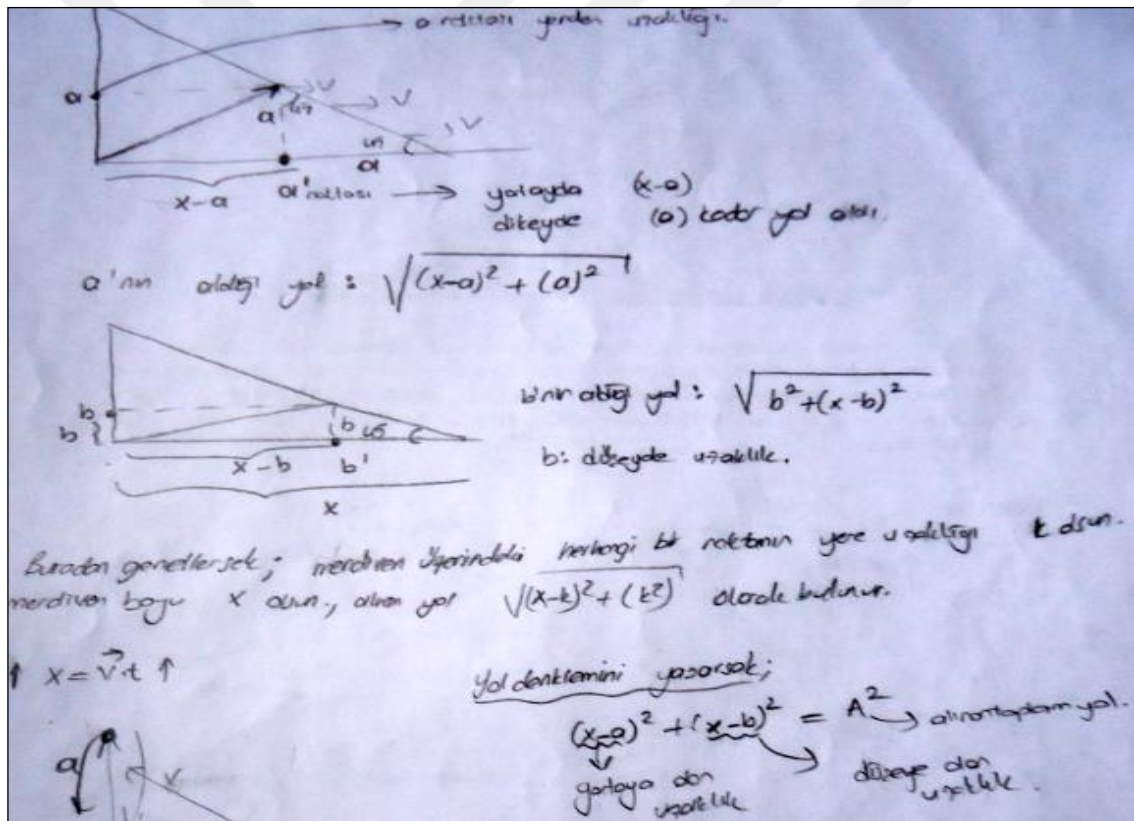 a noktası yerden uzaklığı.
a
V
a 45
V
V
45
a
x-a
a' noktası → yatayda (x-a)
dikeyde (a) kadar yol aldı.
a'nın aldığı yol : √(x-a)² + (a)²
b
b
b 45
b'nin aldığı yol : √b²+(x-b)²
x-b b'
b: düşeyde uzaklık.
x
Buradan genellersek; merdiven üzerindeki herhangi bir noktanın yere uzaklığı k olsun.
merdiven boyu x olsun., alınan yol √(x-k)² + (k²) olarak bulunur.
↑ x = v⃗.t ↑
Yol denklemini yazarsak;
(x-a)² + (x-b)² = A² → alınan toplam yol.
yataya olan uzaklık
düşeye olan uzaklık.
a
V